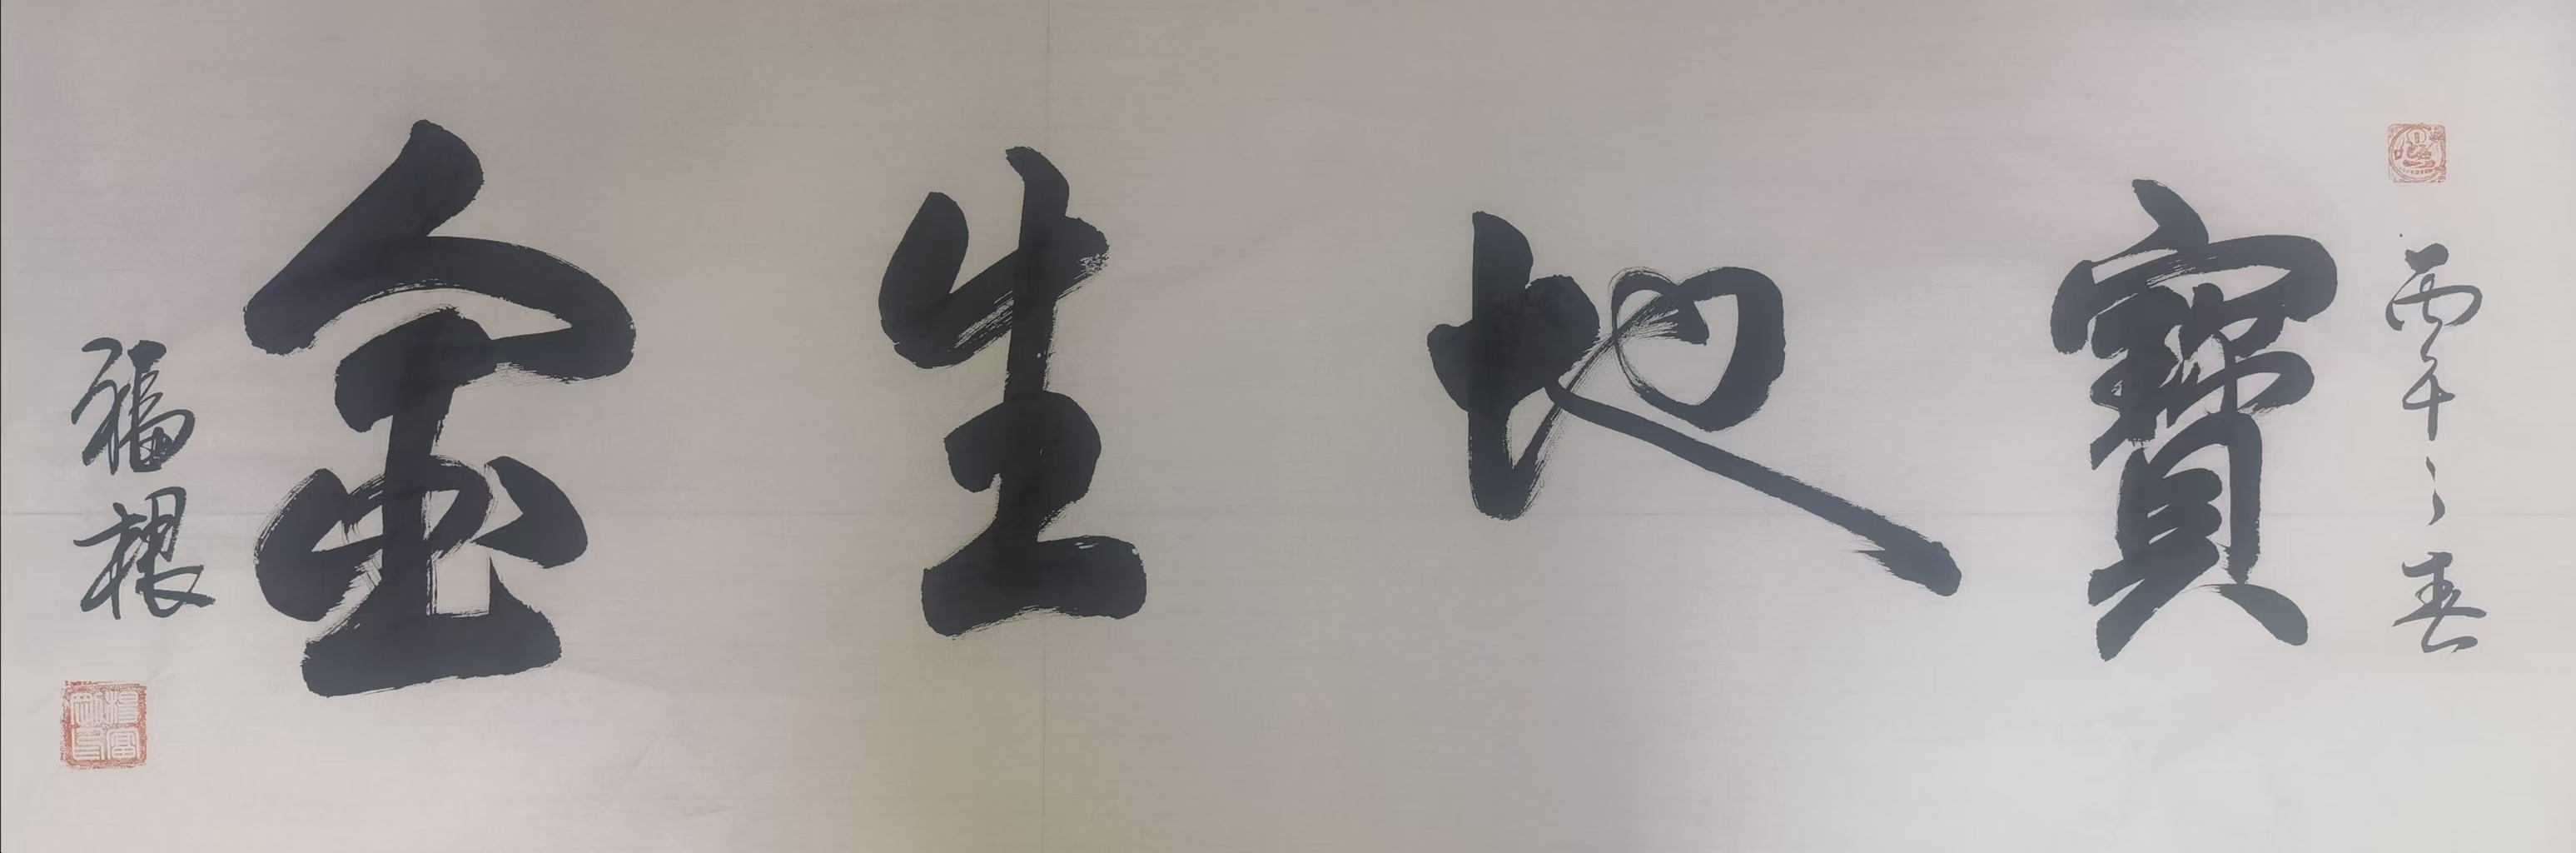 丙午之春
寶地生金
福根